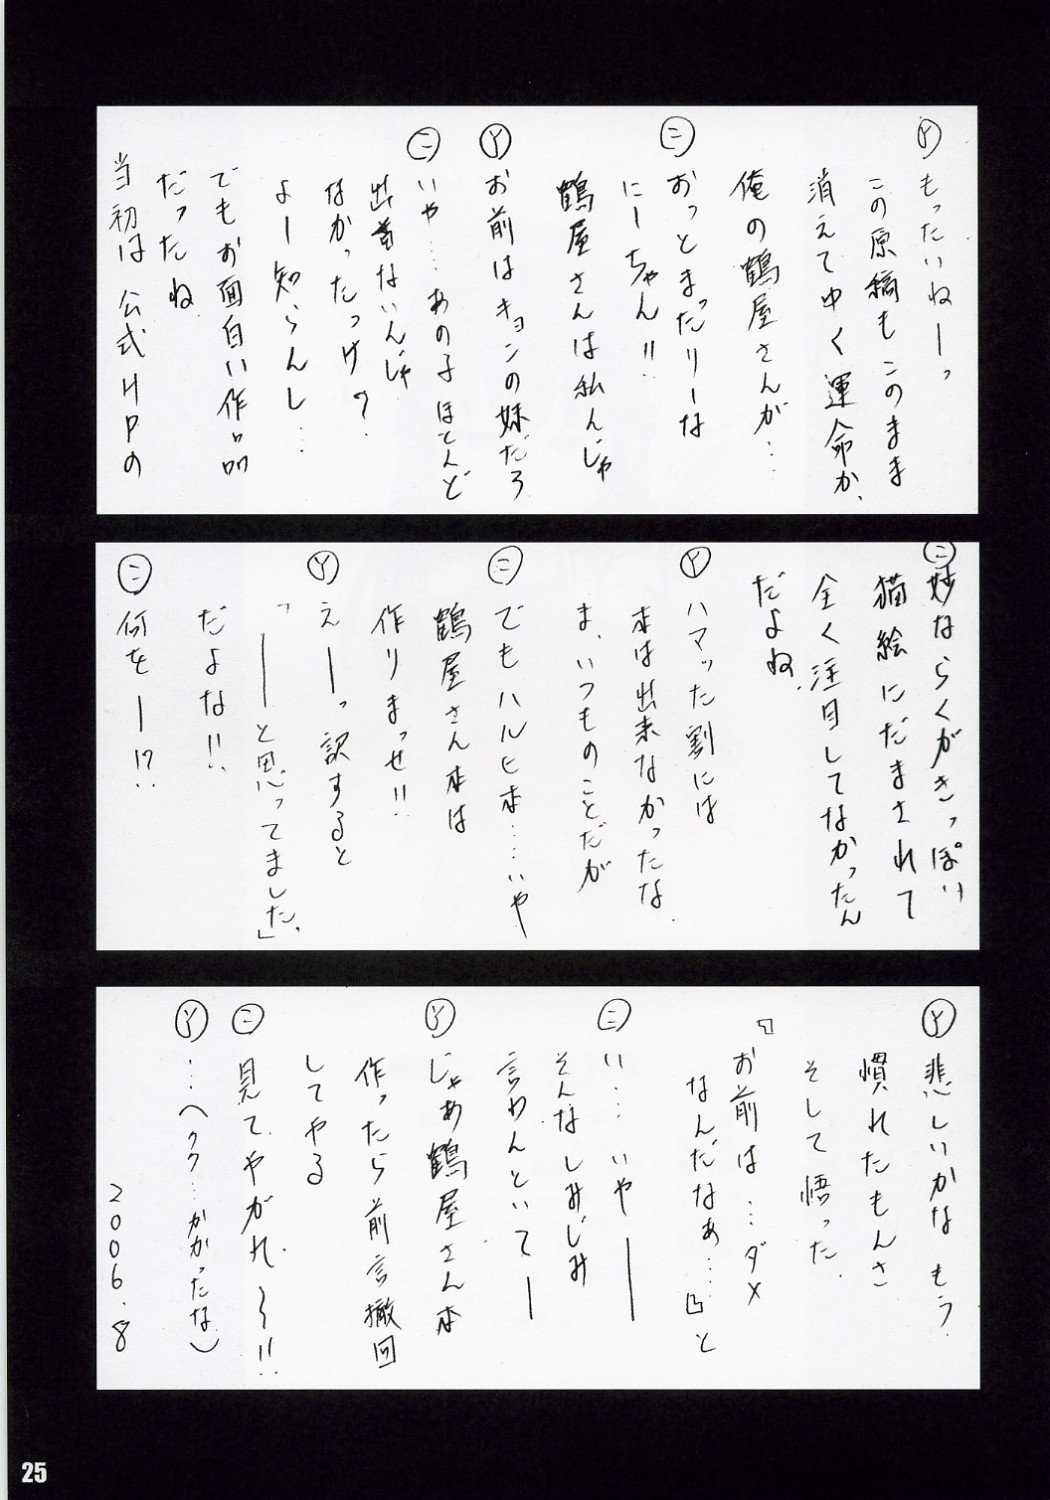 Ⓨもったいねーっ
この原稿もこのまま
消えてゆく運命か、
俺の鶴屋さんが…
㊁おっとまったりーな
にーちゃん!!
鶴屋さんは私んじゃ
Ⓨお前はキョンの妹だろ
㊁いや…あの子ほとんど
出番ないんじゃ
なかったっけ?
よー知らんし…
でもお面白い作品
だったね
当初は公式HPの
㊁妙ならくがきっぽい
猫絵にだまされて
全く注目してなかったん
だよね、
Ⓨハマッた割には
本は出来なかったな、
ま、いつものことだが
㊁でもハルヒ本……いや
鶴屋さん本は
作りまっせ!!
Ⓨえーーっ訳すると
「――と思ってました。」
だよな!!
㊁何をー!?
Ⓨ悲しいかなもう
慣れたもんさ
そして悟った、
『お前は…ダメ
なんだなぁ…』と
㊁い…いや――
そんなしみじみ
言わんといてー
Ⓨじゃあ鶴屋さん本
作ったら前言撤回
してやる
㊁見てやがれ〜!!
Ⓨ…(ククク…かかったな)
2006.8
25